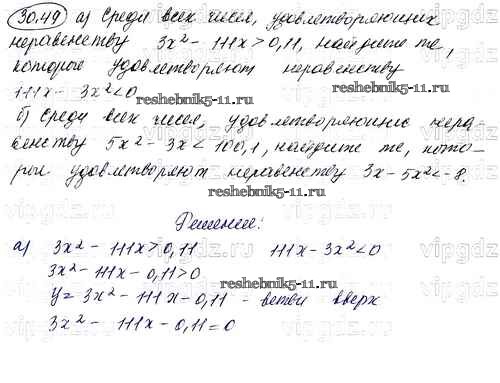 30.49 а) Среди всех чисел, удовлетворяющих
неравенству 3x² - 111x > 0,11, найдите те,
которые удовлетворяют неравенству
111x - 3x² < 0
reshebnik5-11.ru
reshebnik5-11.ru
б) Среди всех чисел, удовлетворяющих нера-
венству 5x² - 3x < 100,1, найдите те, кото-
рые удовлетворяют неравенству 3x - 5x² < -8.
reshebnik5-11.ru
Решение:
vipgdz.ru
а) 3x² - 111x > 0,11 111x - 3x² < 0
3x² - 111x - 0,11 > 0
reshebnik5-11.ru
y = 3x² - 111x - 0,11 - ветви вверх
3x² - 111x - 0,11 = 0